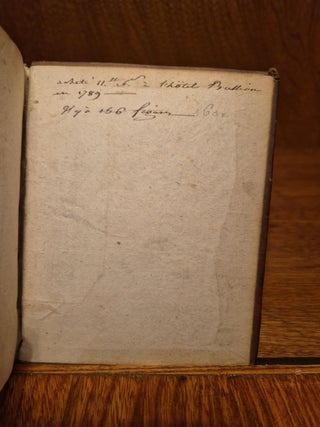 acheté 11.tt à l'hôtel Bullion
en 1789
Il y a 166 figures